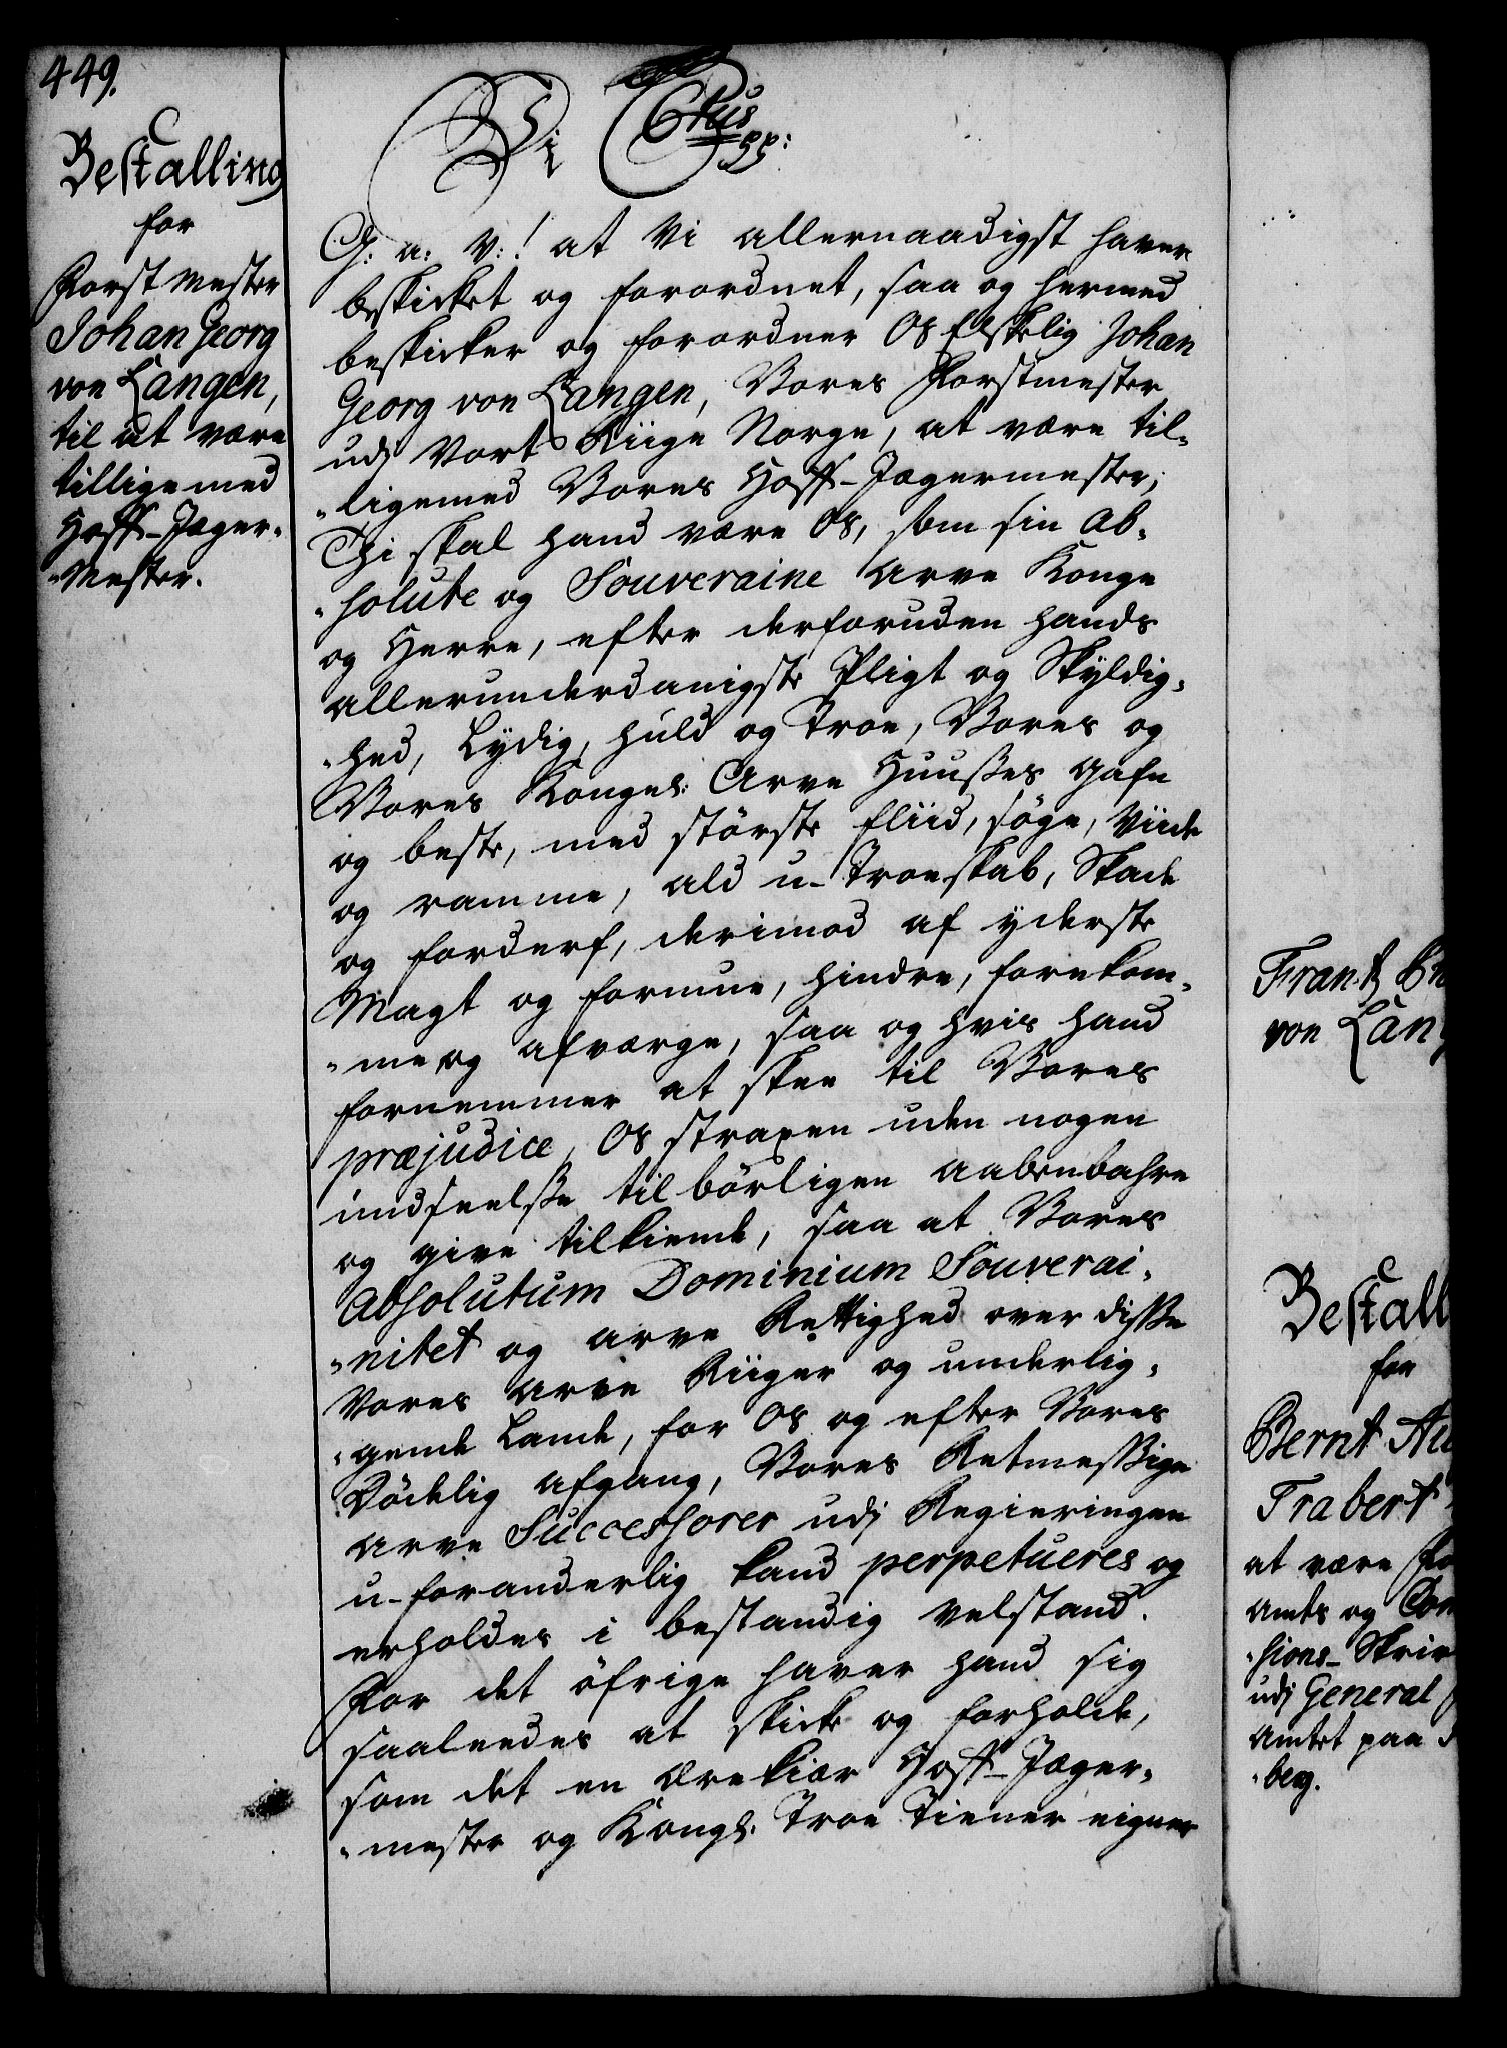 449.
Bestalling
for
Forst Mester
Johan Georg
von Langen,
til at være
tillige med
Hoff-Jæger-
-Mester.
Vi C6tus pp:
G: a: V:! at Vi allernaadigst haver
beskicket og forordnet, saa og hermed
beskicker og forordner Os Elskelig Johan
Georg von Langen, Vores Forstmester
udj Vort Riige Norge, at være til-
-ligemed Vores Hoff-Jægermester;
Thi skal hand være Os, som sin Ab-
-solute og Souveraine Arve Konge
og Herre, efter derforuden hands
allerunderdanigste Pligt og Skyldig-
-hed, Lydig, huld og Troe, Vores og
Vores Kongel: Arve Huuses gafn
og beste, med störste fliid, söge, Viide
og ramme, ald u-Troeskab, Skade
og forderf, derimod af yderste
Magt og formue, hindre, forekom-
-me og afværge, saa og hvis hand
fornemmer at skee til Vores
præjudice, Os straxen uden nogen
undseelse tilbörligen aabenbahre
og give tilkiende, saa at Vores
Absolutum Dominium Souverai-
-nitet og arve Rettighed over disse
Vores Arve Riiger og underlig-
-gende Lande, for Os og efter Vores
Dödelig afgang, Vores Retmessige
Arve Successorer udj Regieringen
u-foranderlig kand perpetueres og
erholdes i bestandig velstand.
For det öfrige haver hand sig
saaleedes at skicke og forholde,
som det en ærekiær Hoff-Jæger-
-mester og Kongl: Troe Tiener eigner
Frantz
von Lang
Bestall
for
Bernt
Trabert
at være
Amts og
-sions-Skriv
udj General
Amtet paa
-berg.